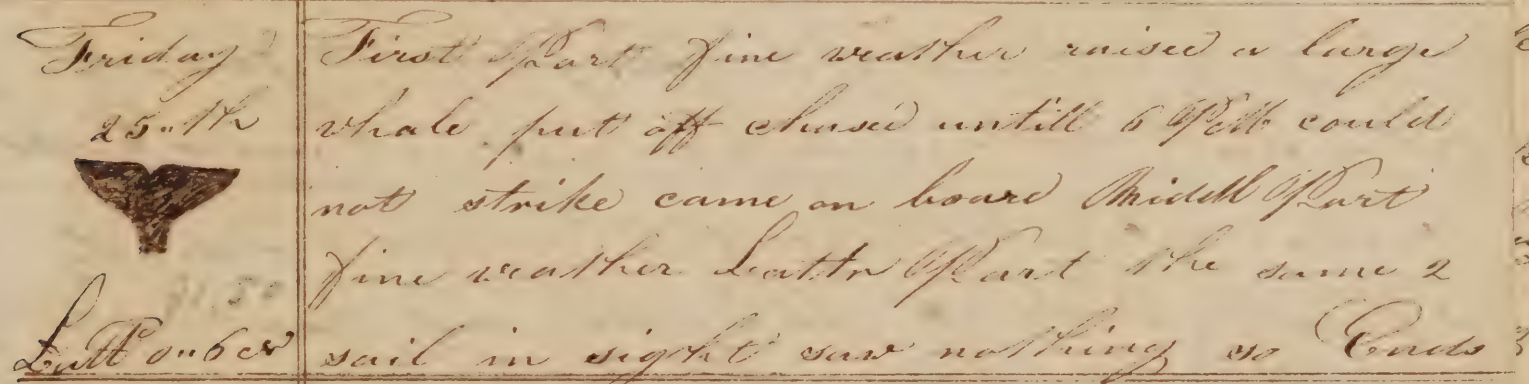 Friday
25..th
Latt 0..6
First Part fine weather raised a large
whale put off chased untill 6 PM could
not strike came on board Middl Part
fine weather Lattr Part the same 2
sail in sight saw nothing so Ends